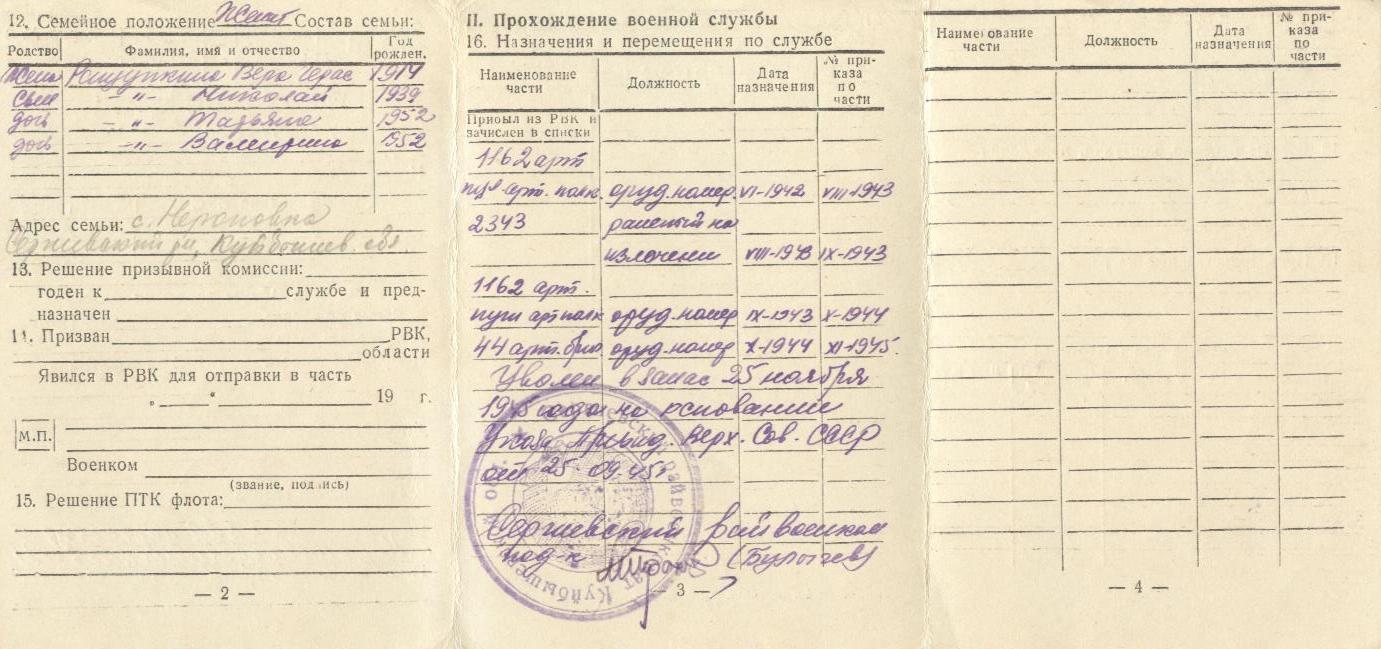 12. Семейное положение женат Состав семьи:
Родство Фамилия, имя и отчество Год рожден.
жена Вера Герас 1914
сын -"- Николай 1939
дочь -"- Татьяна 1952
дочь -"- Валентина 1952
Адрес семьи: с.
Куйбышев. обл.
13. Решение призывной комиссии:
годен к службе и пред-
назначен
14. Призван РВК,
области
Явился в РВК для отправки в часть
„ “ 19 г.
М.П.
Военком
(звание, подпись)
15. Решение ПТК флота:
— 2 —
II. Прохождение военной службы
16. Назначения и перемещения по службе
Наименование части Должность Дата назначения № при-каза по части
Прибыл из РВК и
зачислен в списки
1162 арт
арт. полк оруд. номер VI-1942 VIII-1943
2343 раненый на
излечении VIII-1943 IX-1943
1162 арт.
пуш артполк оруд. номер IX-1943 X-1944
44 арт. бриг. оруд. номер X-1944 XI-1945.
Уволен в запас 25 ноября
1945 года на основании
Указа Презид. Верх. Сов. СССР
от 25.09.45
Сергиевский райвоенком
под-к (Булычев)
— 3 —
Наименование части Должность Дата назначения № при-каза по части
— 4 —